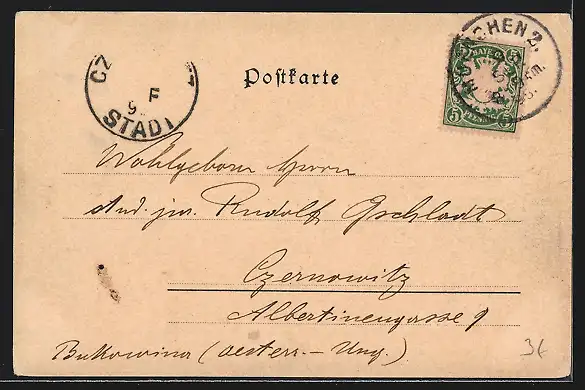 MÜNCHEN 2.
BAYERN
5 5
5 PFENNIG 5
CZ
F
9
STADT
Postkarte
Wohlgeborn Herrn
stud. jur. Rudolf Gschladt
Czernowitz
Albertinengasse 9
Bukowina (oesterr. - Ung.)